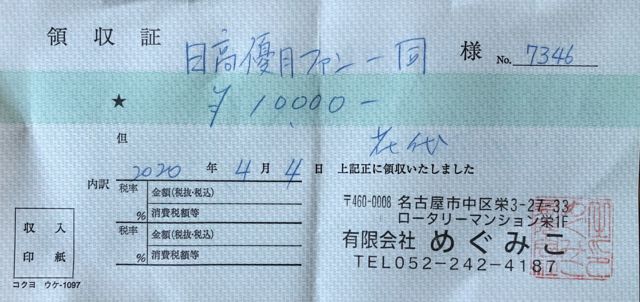 領収証 日高優月ファン一同 様 No. 7346
★ ¥10,000-
但 花代
2020年4月4日 上記正に領収いたしました
内訳
税率 % 金額(税抜・税込)
消費税額等
税率 % 金額(税抜・税込)
消費税額等
収入
印紙
コクヨ ウケ-1097
〒460-0008 名古屋市中区栄3-27-33
ロータリーマンション栄1F
有限会社 めぐみこ
TEL052-242-4187